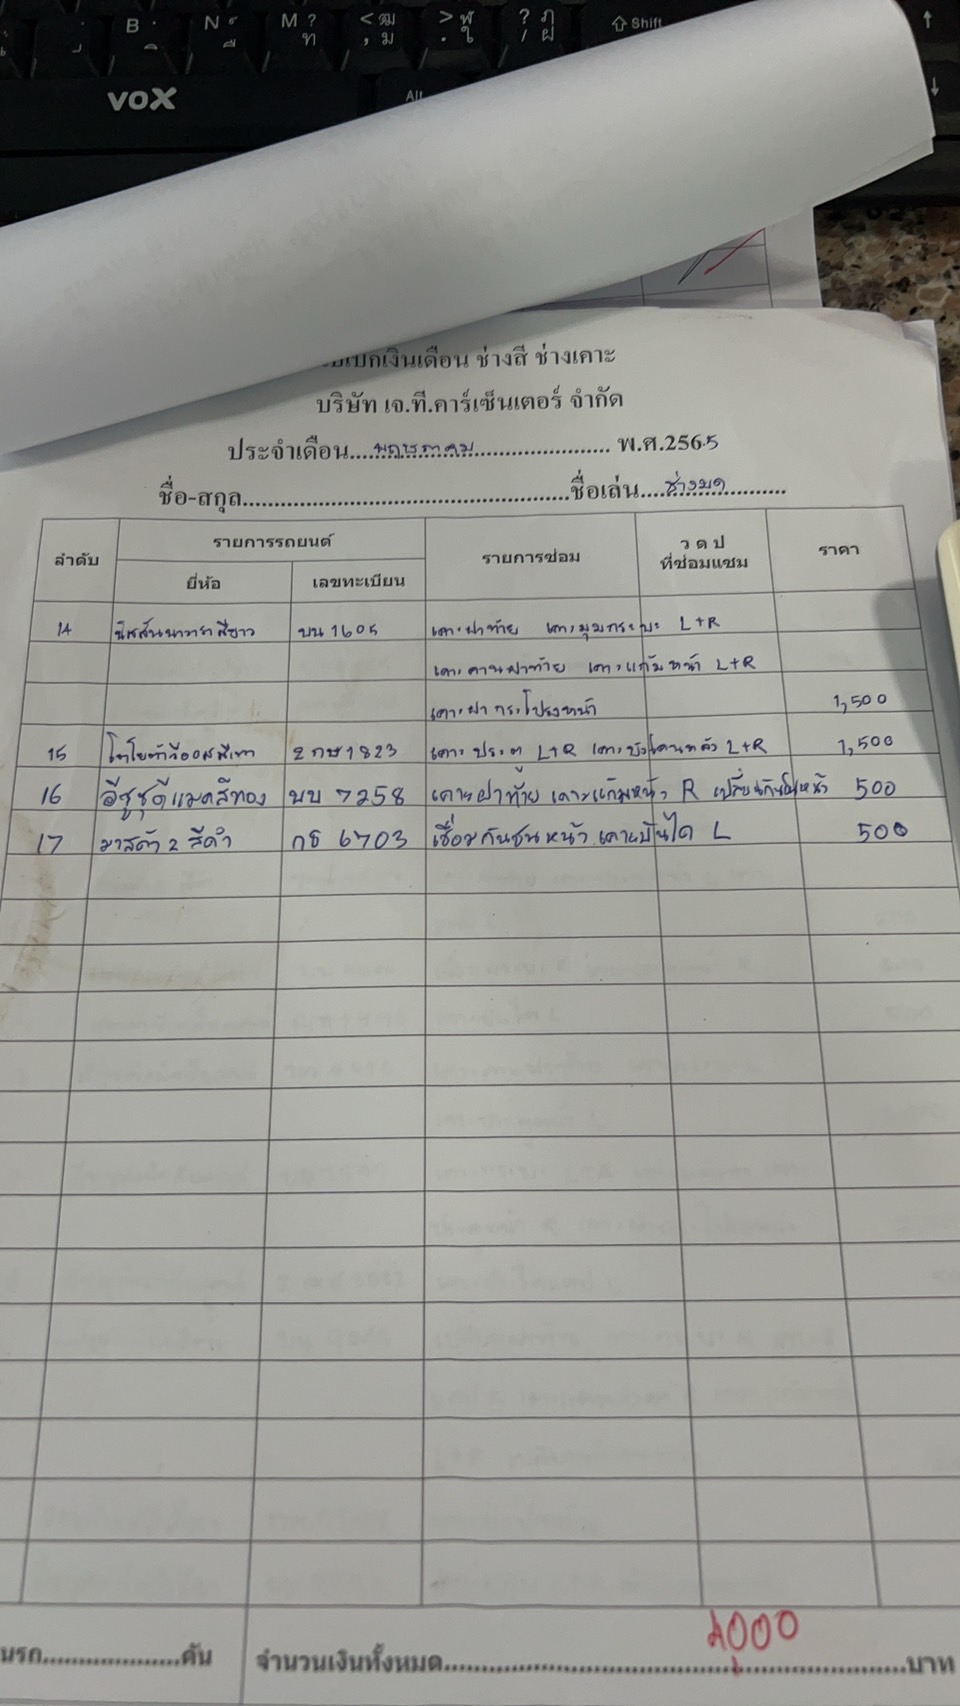 B
N
M ?
ท
Shift
VOX
Alt
เบิกเงินเดือน ช่างสี ช่างเคาะ
บริษัท เจ.ที.คาร์เซ็นเตอร์ จำกัด
ประจำเดือน....พฤษภาคม.................... พ.ศ.2565
ชื่อ-สกุล....................................................ชื่อเล่น....ช่างมด..........
ลำดับ รายการรถยนต์ รายการซ่อม ว ด ป ที่ซ่อมแซม ราคา
ยี่ห้อ เลขทะเบียน
14 นิสสันนาวาราสีขาว บน 1605 เคาะฝาท้าย เคาะมุมกระบะ L+R
เคาะคานฝาท้าย เคาะแก้มหน้า L+R
เคาะฝากระโปรงหน้า 1,500
15 โตโยต้าวีออสสีเทา 2 กษ 1823 เคาะประตู L+R เคาะบังโคลนหลัง L+R 1,500
16 อีซูซุดีแมคสีทอง บบ 7258 เคาะฝาท้าย เคาะแก้มหน้า R เปลี่ยนกันชนหน้า 500
17 มาสด้า 2 สีดำ กธ 6703 เชื่อมกันชนหน้า เคาะบันได L 500
นรถ....................คัน จำนวนเงินทั้งหมด....4,000....บาท